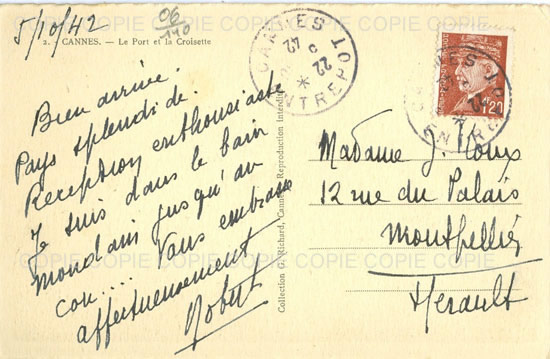 5/10/42
06/140
2. CANNES. — Le Port et la Croisette
Bien arrivé.
Pays splendide.
Reception enthousiaste
Je suis dans le bain
mondain jusqu'au
cou.... Vous embrasse
affectueusement
Robert
Collection G. Richard, Cannes, Reproduction Interdite
CANNES
ENTREPOT
22
42
1,20
Madame J.
12 rue du Palais
Montpellier
Herault
COPIE COPIE COPIE COPIE COPIE COPIE
COPIE COPIE COPIE COPIE COPIE COPIE
COPIE COPIE COPIE COPIE COPIE COPIE